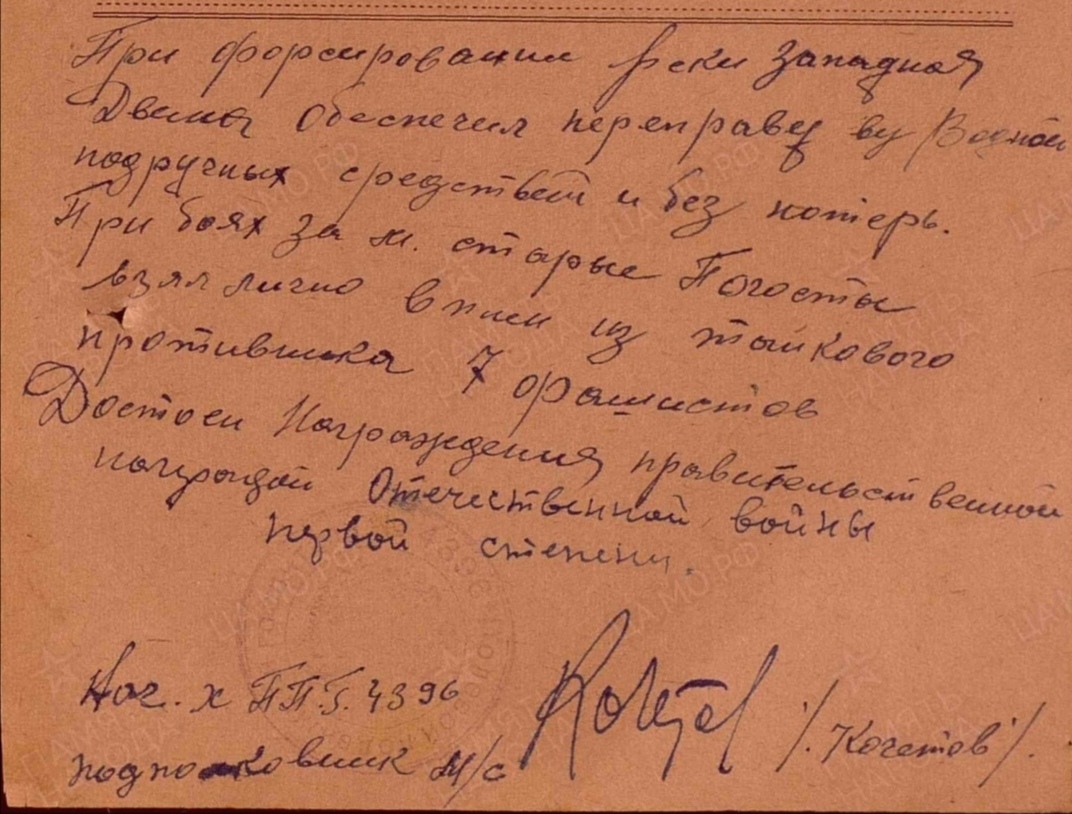 При форсировании реки Западная
Двина обеспечил переправу
подручных средствам и без потерь.
При боях за м. старые Погосты
взял лично в плен из
противника 7 фашистов
Достоен Награждения правительственной
наградой Отечественной войны
первой степени.
Нач. х ППГ. 4396
подполковник м/с /Кочетов/.